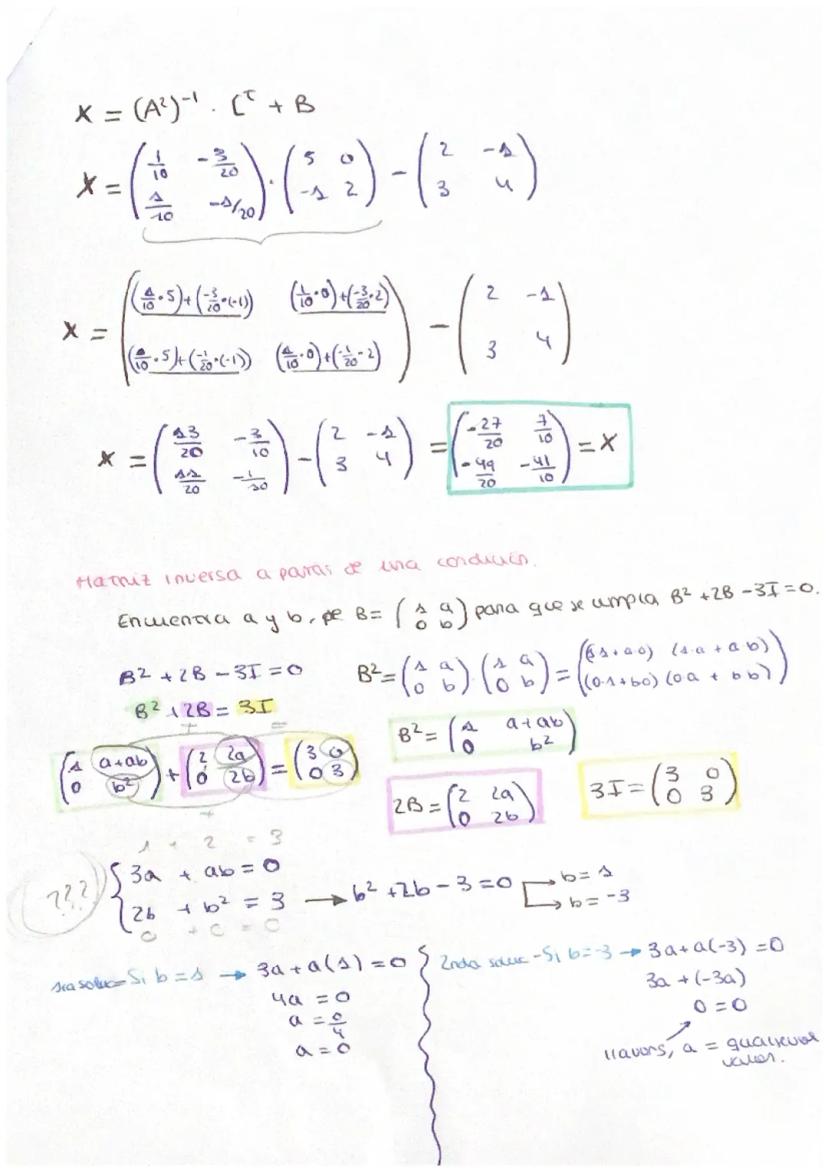 X = (A²)⁻¹ · Cᵀ + B
X = (1/10 -3/20 ; 1/10 -1/20) · (5 0 ; -1 2) - (2 -1 ; 3 4)
X = ((1/10·5)+(-3/20·(-1)) (1/10·0)+(-3/20·2) ; (1/10·5)+(-1/20·(-1)) (1/10·0)+(-1/20·2)) - (2 -1 ; 3 4)
X = (13/20 -3/10 ; 11/20 -1/10) - (2 -1 ; 3 4) = (-27/20 7/10 ; -49/20 -41/10) = X
Matriz inversa a partir de una condición.
Encuentra a y b, de B = (1 a ; 0 b) para que se umpla B² + 2B - 3I = 0.
B² + 2B - 3I = 0
B² = (1 a ; 0 b) · (1 a ; 0 b) = ((1·1+a·0) (1·a+a·b) ; (0·1+b·0) (0·a+b·b))
B² + 2B = 3I
+ =
B² = (1 a+ab ; 0 b²)
(1 a+ab ; 0 b²) + (2 2a ; 0 2b) = (3 0 ; 0 3)
+
2B = (2 2a ; 0 2b)
3I = (3 0 ; 0 3)
1 + 2 = 3
???
3a + ab = 0
2b + b² = 3 → b² + 2b - 3 = 0 → b = 1 → b = -3
0 + 0 = 0
1ra soluc- Si b = 1 → 3a + a(1) = 0
4a = 0
a = 0/4
a = 0
2nda soluc - Si b = -3 → 3a + a(-3) = 0
3a + (-3a)
0 = 0
llavors, a = qualsevol
valor.